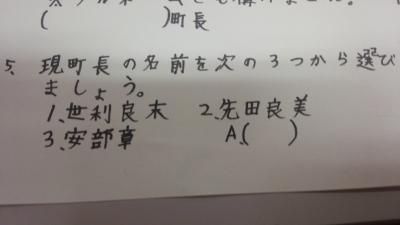 (　　　)町長
5. 現町長の名前を次の3つから選び
ましょう。
1、世利良末　2、先田良美
3、安部章　A、(　　)